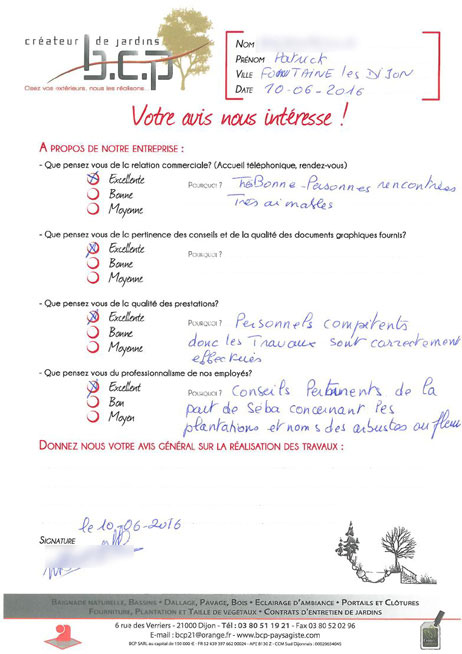 créateur de jardins
b.c.p
Osez vos extérieurs, nous les réalisons...
NOM
PRÉNOM Patrick
VILLE FONTAINE les DIJON
DATE 10-06-2016
Votre avis nous intéresse !
A PROPOS DE NOTRE ENTREPRISE :
- Que pensez vous de la relation commerciale? (Accueil téléphonique, rendez-vous)
Excellente POURQUOI ? Très Bonne - Personnes rencontrées
Bonne Très aimables
Moyenne
- Que pensez vous de la pertinence des conseils et de la qualité des documents graphiques fournis?
Excellente POURQUOI ?
Bonne
Moyenne
- Que pensez vous de la qualité des prestations?
Excellente POURQUOI ? Personnels compétents
Bonne donc les Travaux sont correctement
Moyenne effectués
- Que pensez vous du professionnalisme de nos employés?
Excellent POURQUOI ? Conseils Pertinents de la
Bon part de Seba concernant les
Moyen plantations et noms des arbustes ou fleurs
DONNEZ NOUS VOTRE AVIS GÉNÉRAL SUR LA RÉALISATION DES TRAVAUX :
le 10-06-2016
SIGNATURE
BAIGNADE NATURELLE, BASSINS • DALLAGE, PAVAGE, BOIS • ECLAIRAGE D'AMBIANCE • PORTAILS ET CLÔTURES
FOURNITURE, PLANTATION ET TAILLE DE VÉGÉTAUX • CONTRATS D'ENTRETIEN DE JARDINS
6 rue des Verriers - 21000 Dijon - Tél : 03 80 51 19 21 - Fax 03 80 52 02 96
E-mail : bcp21@orange.fr - www.bcp-paysagiste.com